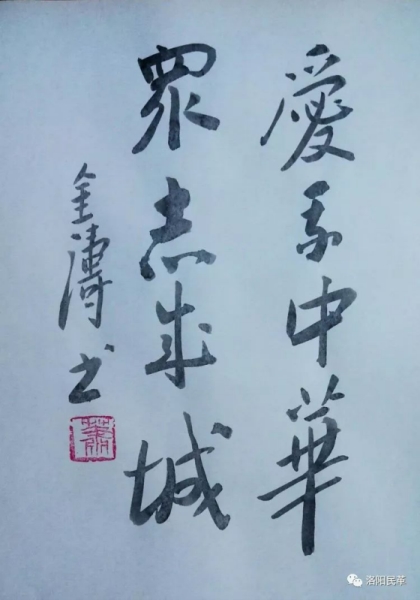 愛我中華
眾志成城
金濤书
洛阳民革